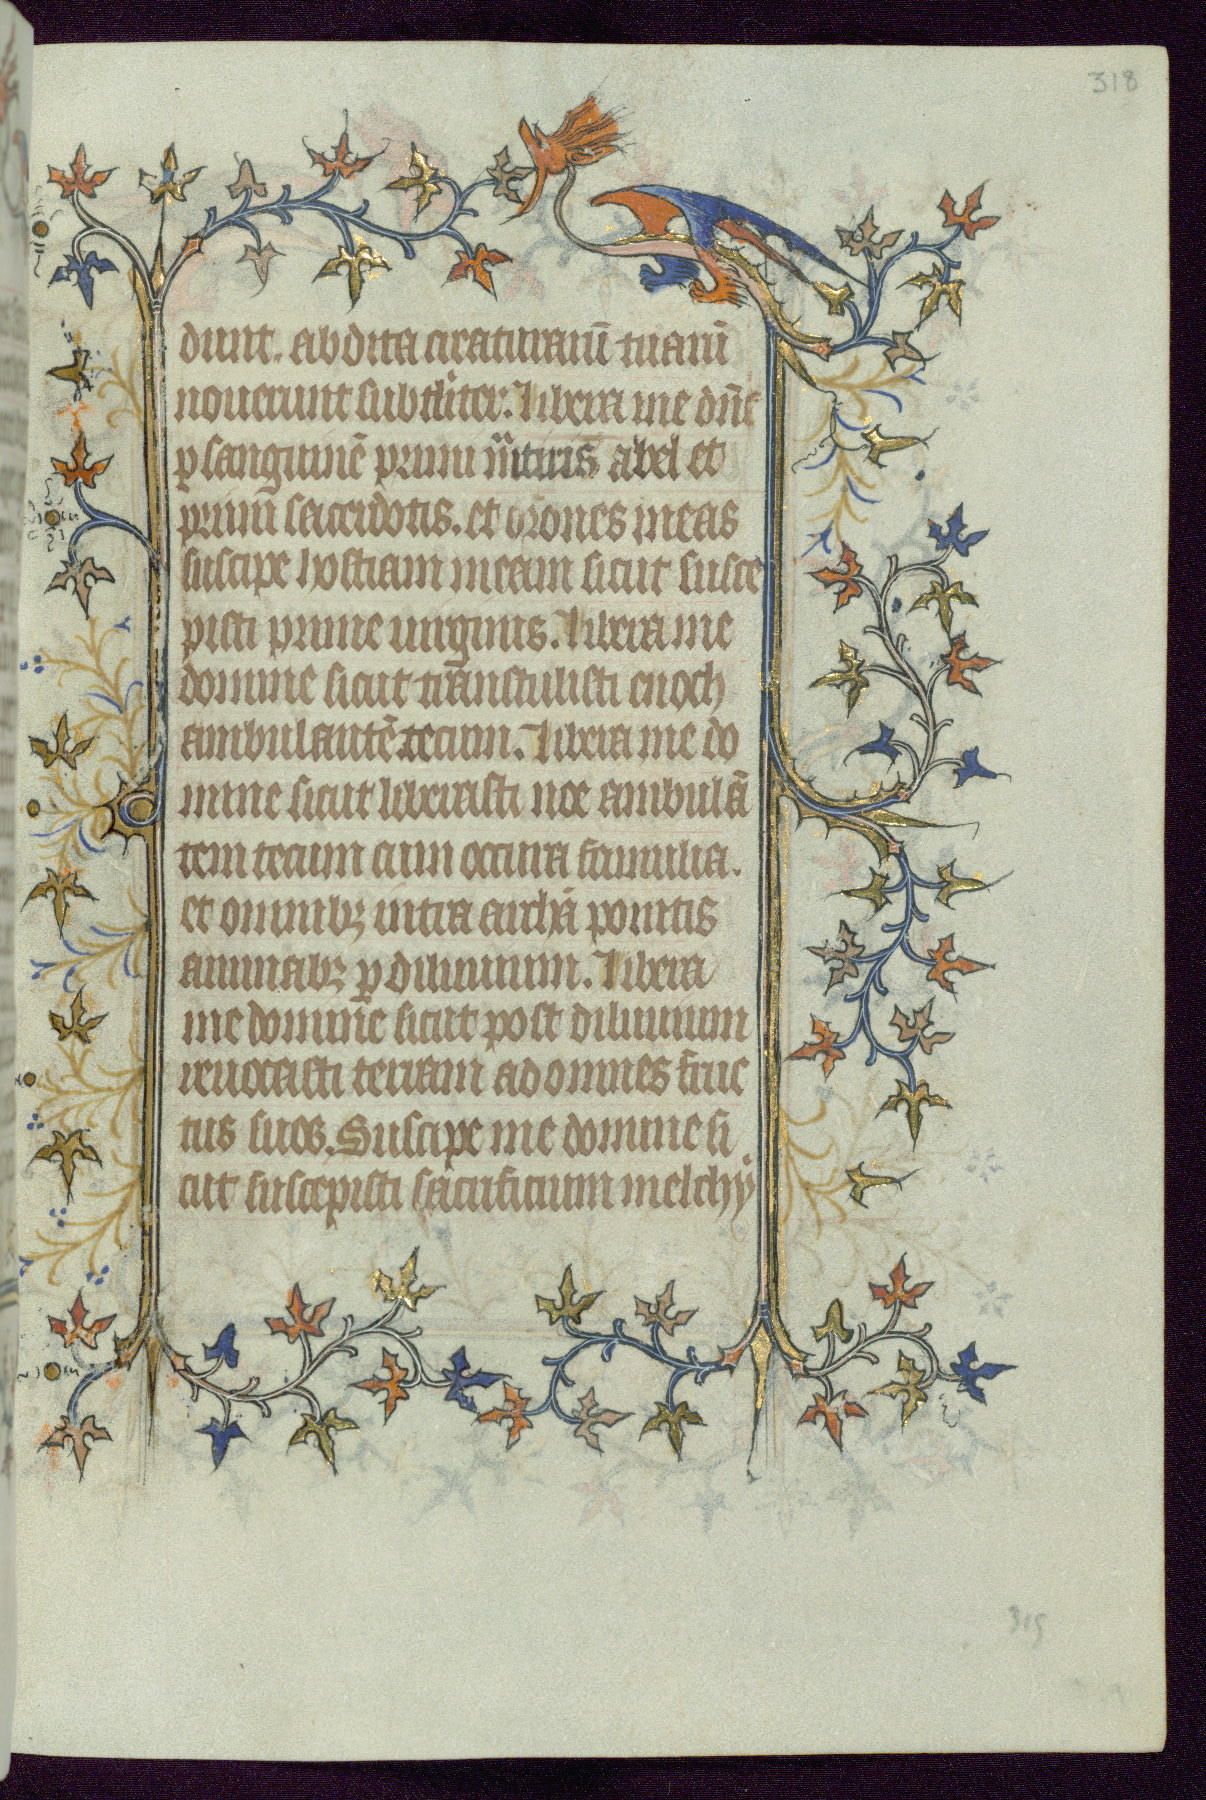 318
dunt. abdita creaturarū tuarū
nouerunt subtiliter. Libera me dñe
p sanguinē primi m̄tiris abel et
primi sacerdotis. et orones meas
suscipe hostiam meam sicut susce
pisti prime uirginis. Libera me
domine sicut transtulisti enoch
ambulantē tecum. Libera me do
mine sicut liberasti noe ambulā
tem tecum cum octaua familia.
et omnibꝫ intra archā positis
animabꝫ p diluuium. Libera
me domine sicut post diluuium
reuocasti terram ad omnes fruc
tus suos. Suscipe me domine si
cut suscepisti sacrificium melchy
315